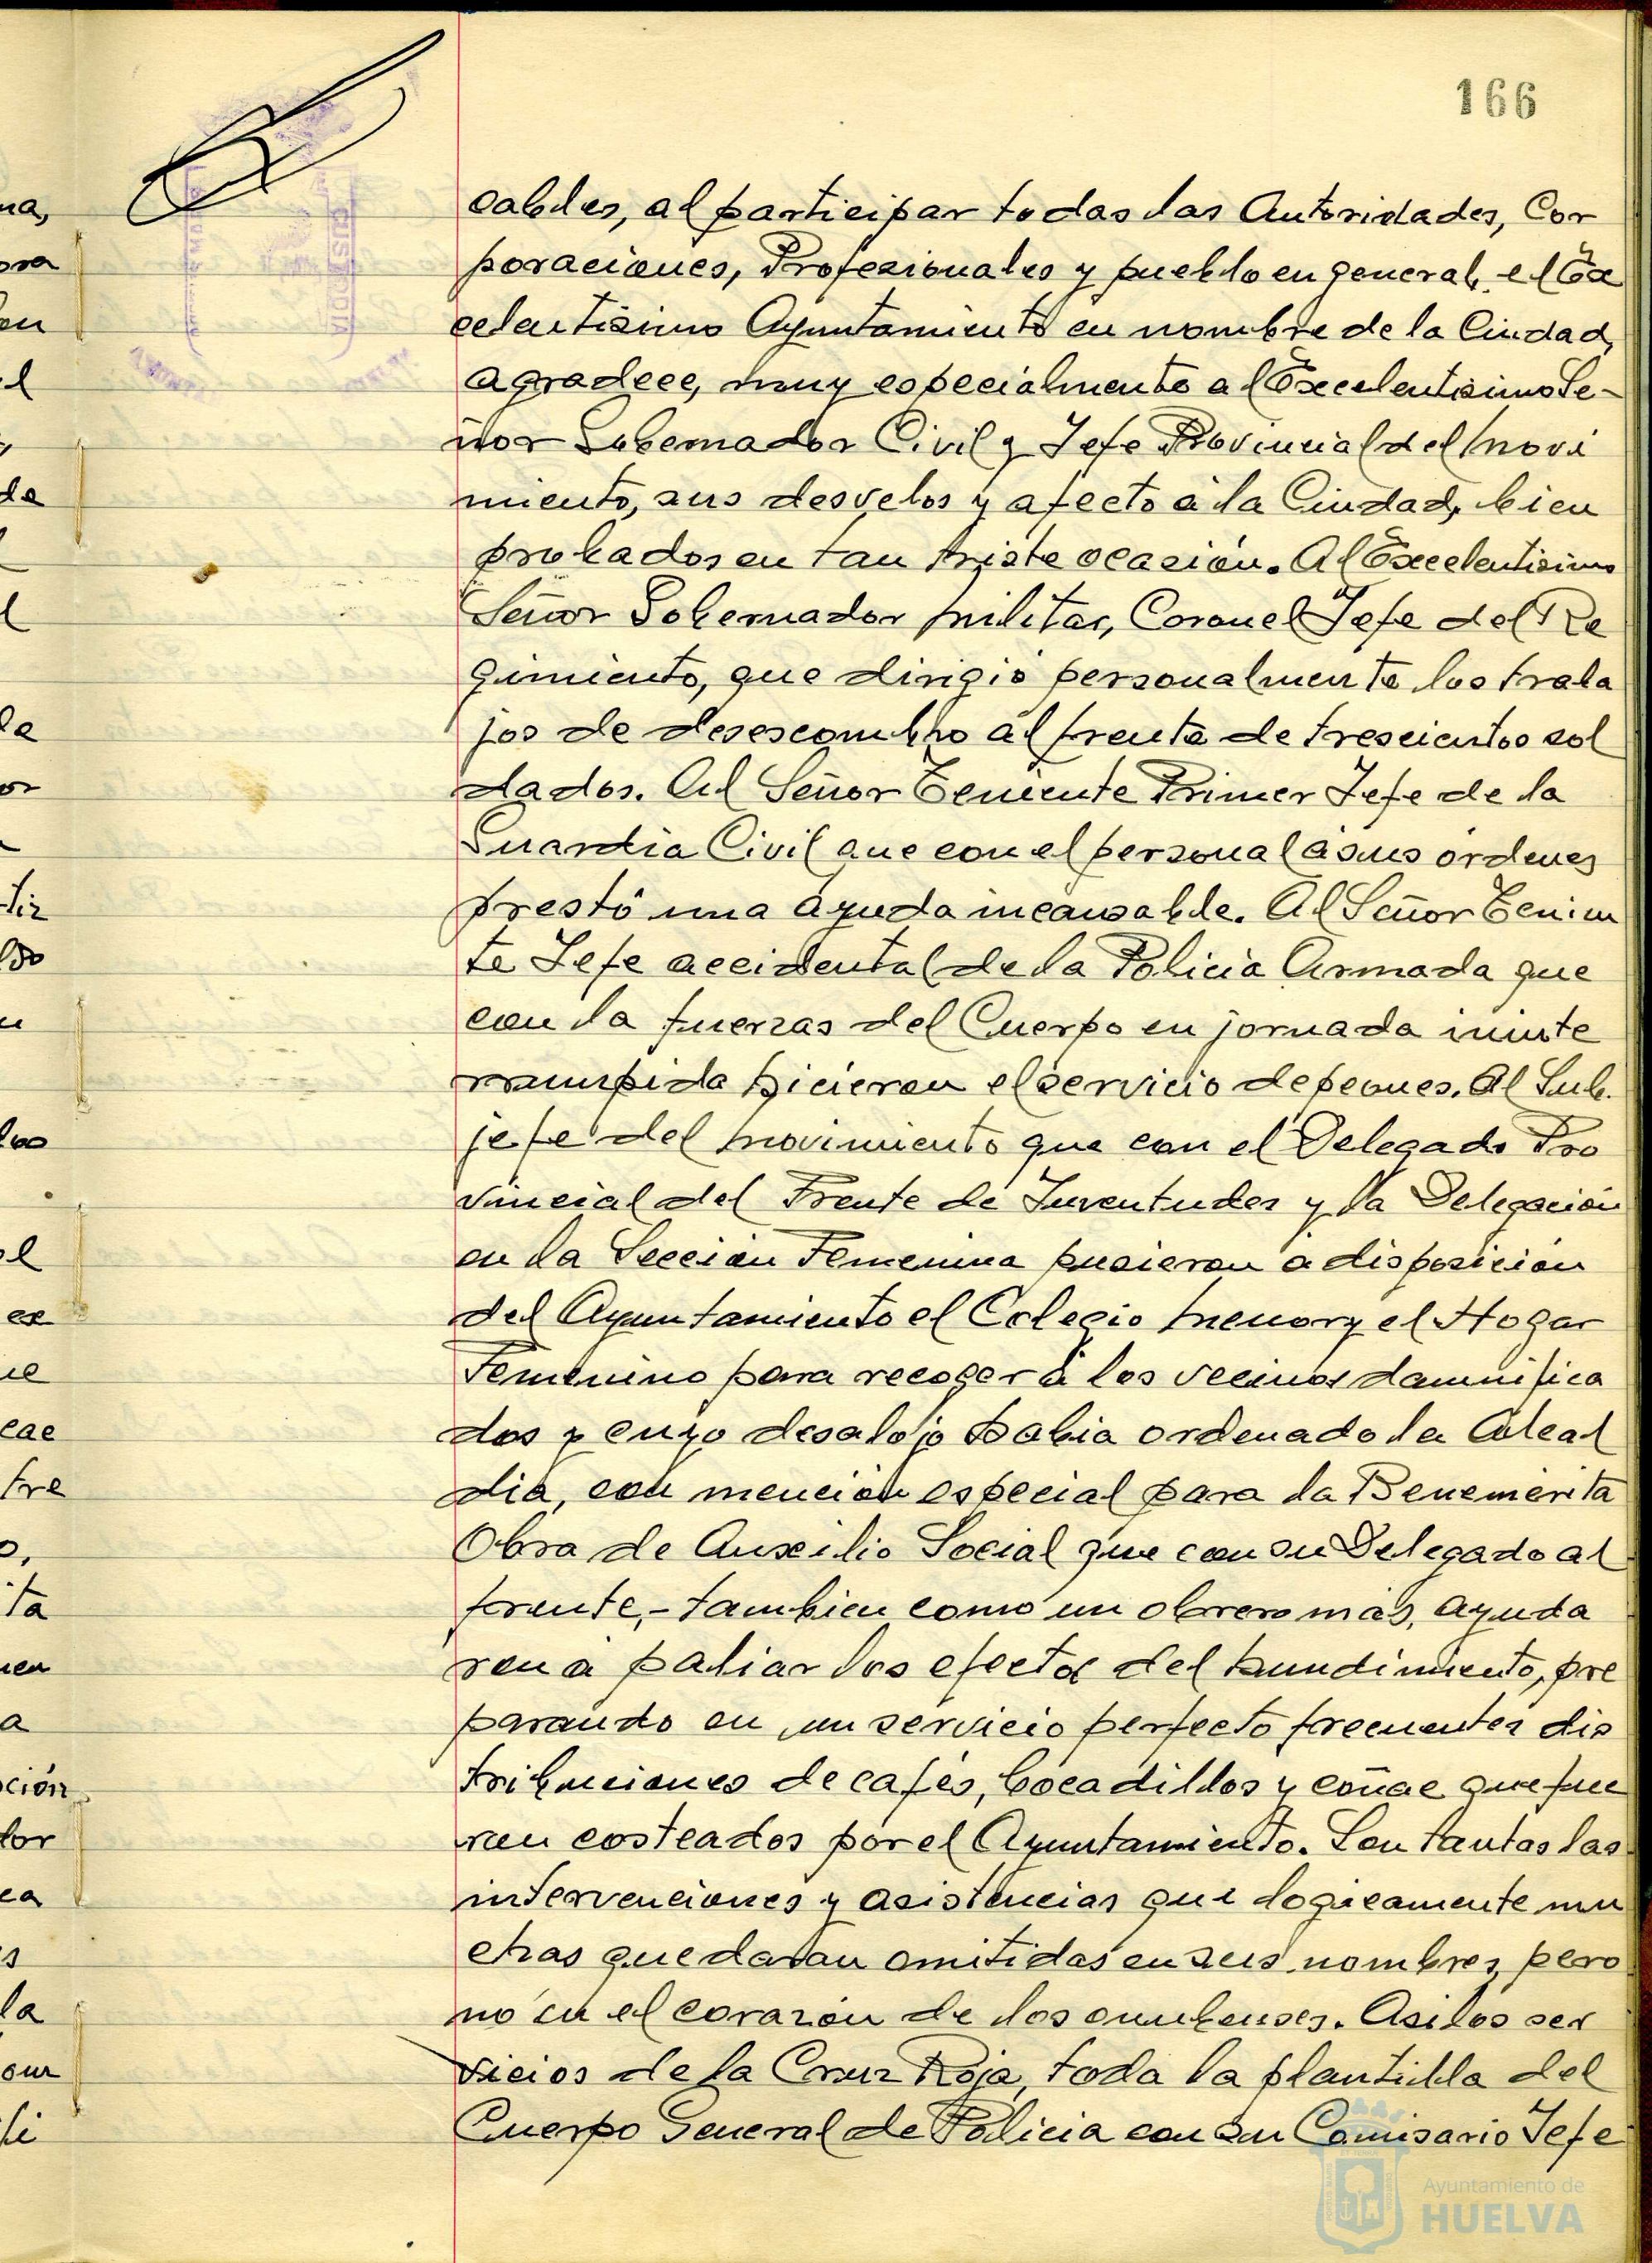 166
cables, al participar todas las Autoridades, Cor
poraciones, Profesionales y pueblo en general, el Ex
celentisimo Ayuntamiento en nombre de la Ciudad,
agradece, muy especialmente al Excelentisimo Se-
ñor Gobernador Civil y Jefe Provincial del Movi
miento, sus desvelos y afecto á la Ciudad, bien
probados en tan triste ocasión. Al Excelentisimo
Señor Gobernador Militar, Coronel Jefe del Re
gimiento, que dirigió personalmente los traba
jos de desescombro al frente de trescientos sol
dados. Al Señor Teniente Primer Jefe de la
Guardia Civil que con el personal á sus órdenes
prestó una ayuda incansable. Al Señor Tenien
te Jefe accidental de la Policia Armada que
con la fuerzas del Cuerpo en jornada ininte
rrumpida hicieron el servicio de peones. Al Sub.
jefe del Movimiento que con el Delegado Pro
vincial del Frente de Juventudes y la Delegación
en la Sección Femenina pusieron a disposición
del Ayuntamiento el Colegio Menor y el Hogar
Femenino para recoger á los vecinos damnifica
dos y cuyo desalojo habia ordenado la Alcal
dia, con mención especial para la Benemérita
Obra de Auxilio Social que con su Delegado al
frente,- tambien como un obrero más, ayuda
ron á paliar los efectos del hundimiento, pre
parando en un servicio perfecto frecuentes dis
tribuciones de cafés, bocadillos y coñac que fue
ron costeados por el Ayuntamiento. Son tantas las
intervenciones y asistencias que logicamente mu
chas quedaran omitidas en sus nombres, pero
nó en el corazón de los onubenses. Asi los ser
vicios de la Cruz Roja, toda la plantilla del
Cuerpo General de Policia con su Comisario Jefe
Ayuntamiento de
HUELVA